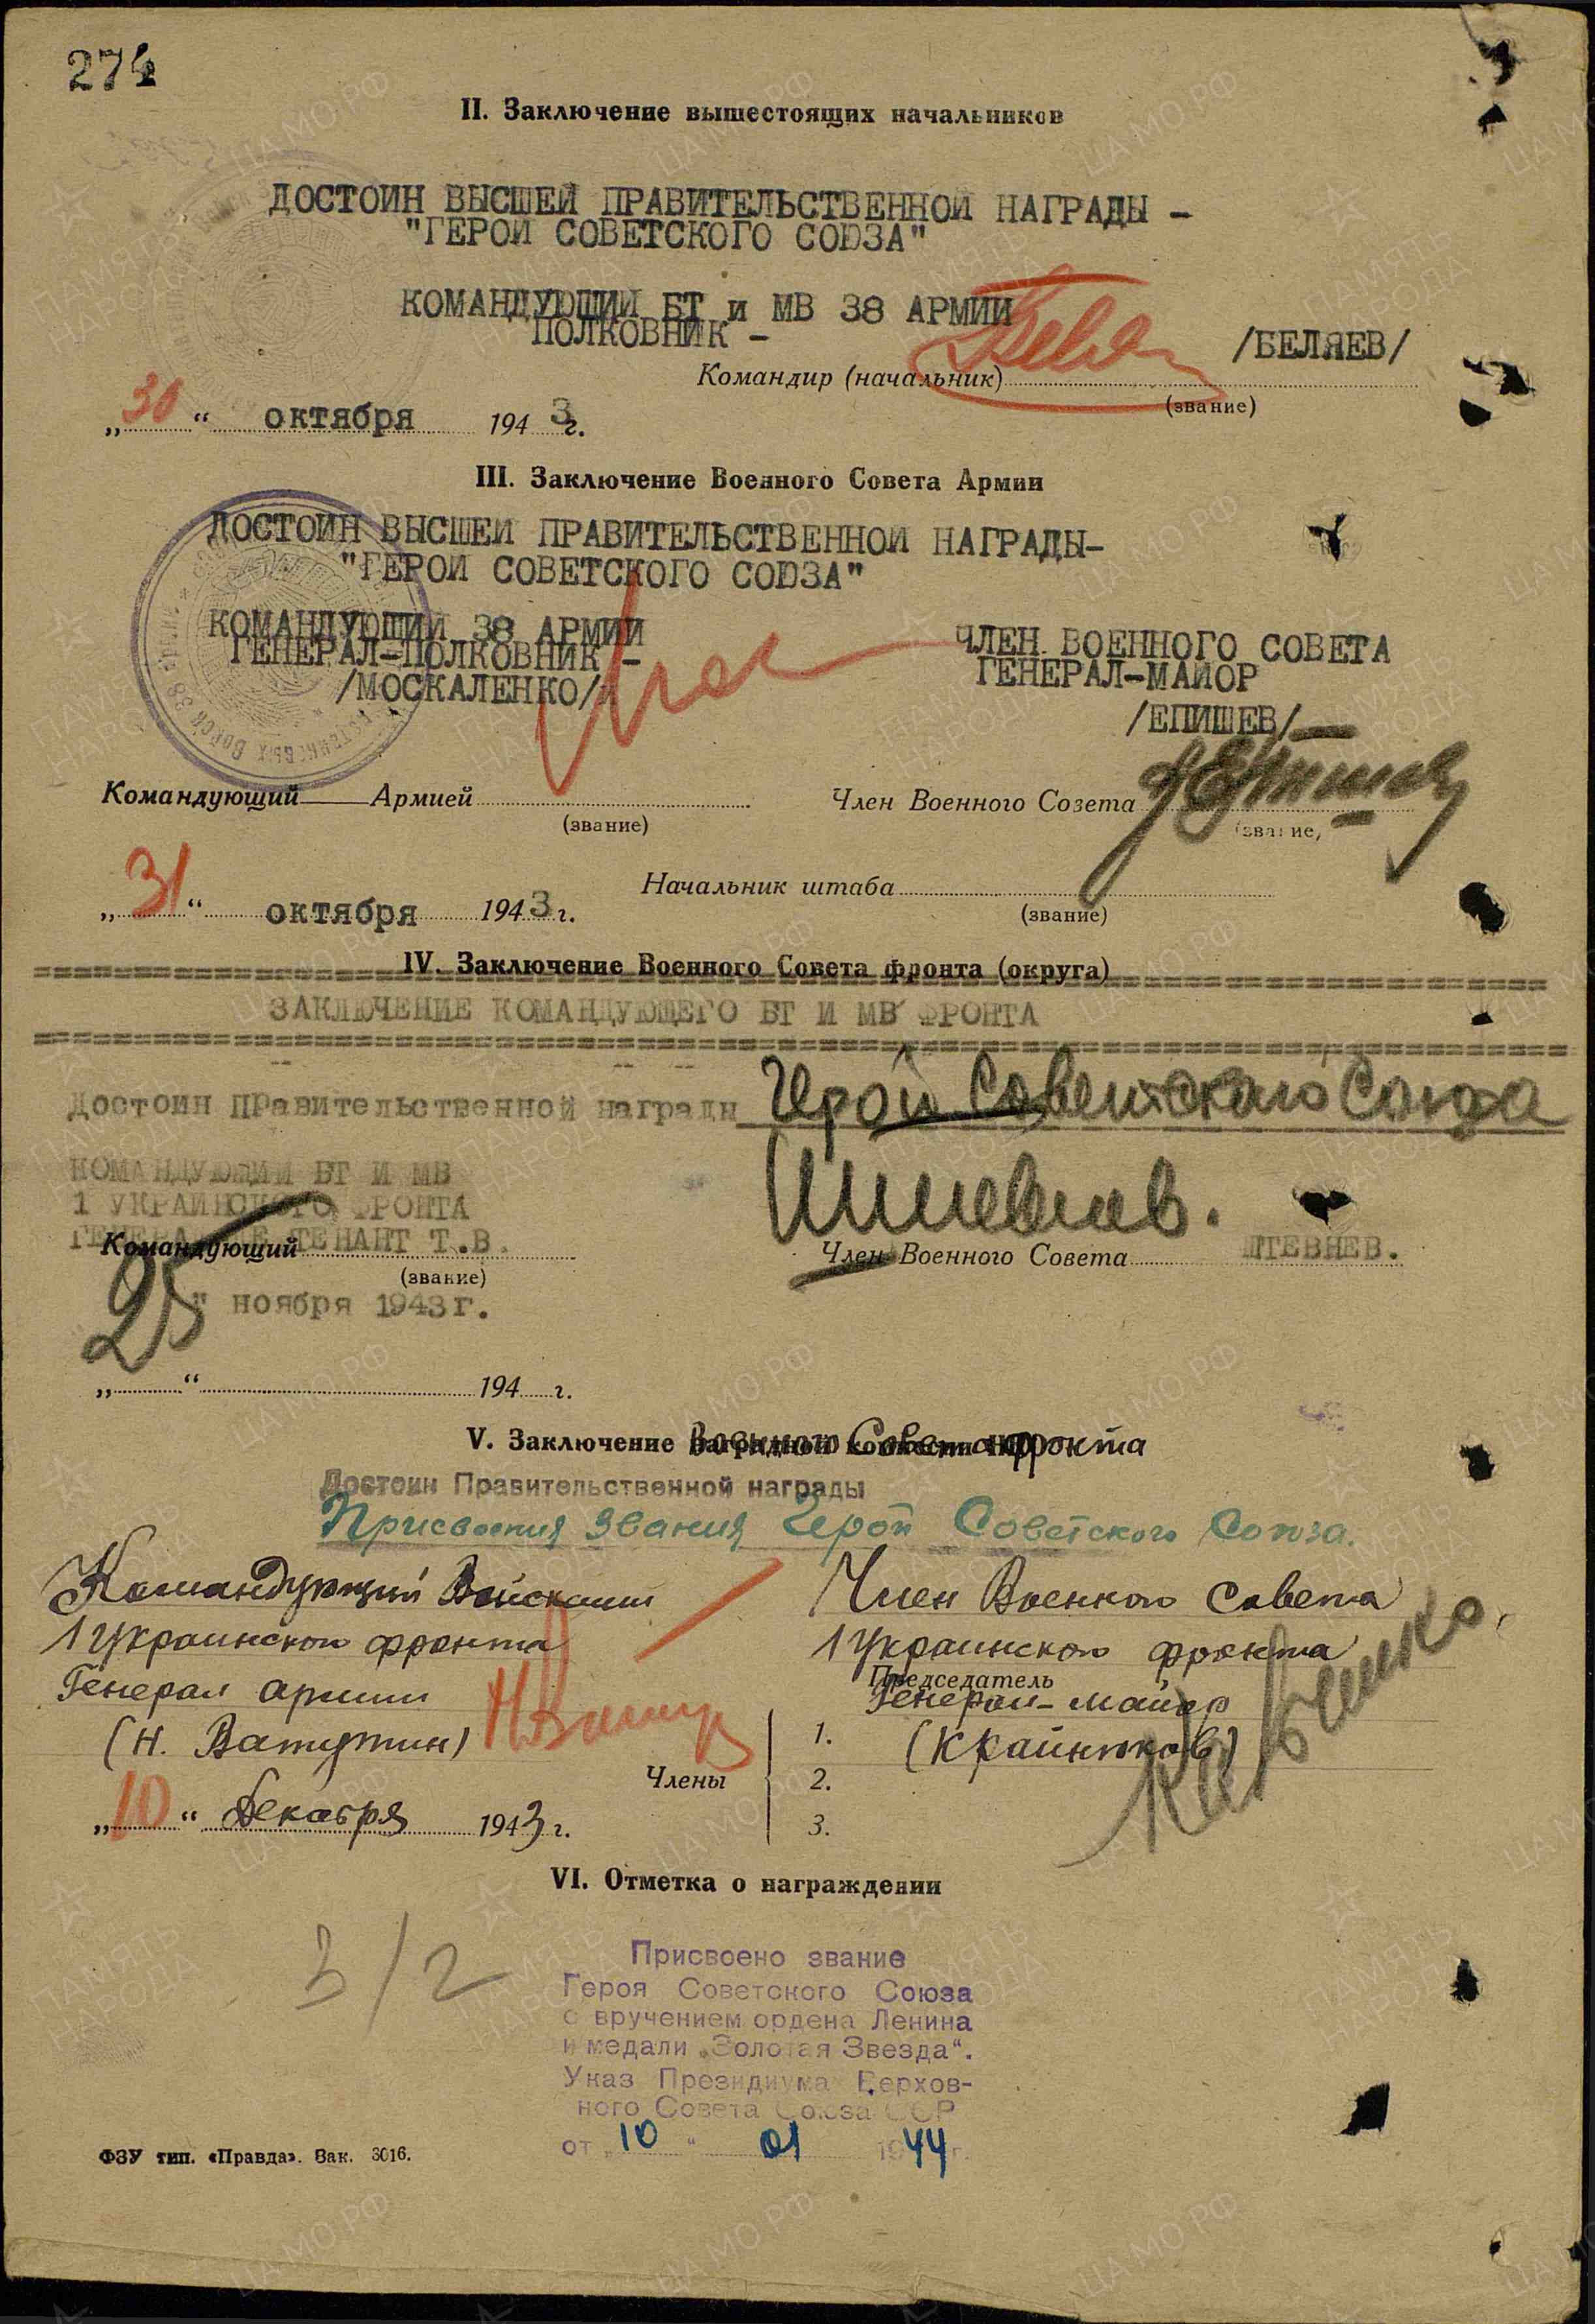 274
II. Заключение вышестоящих начальников
ДОСТОИН ВЫСШЕЙ ПРАВИТЕЛЬСТВЕННОЙ НАГРАДЫ –
"ГЕРОЙ СОВЕТСКОГО СОЮЗА"
КОМАНДУЮЩИЙ БТ и МВ 38 АРМИИ
ПОЛКОВНИК –
/БЕЛЯЕВ/
Командир (начальник)
(звание)
„30“ октября 1943 г.
III. Заключение Военного Совета Армии
ДОСТОИН ВЫСШЕЙ ПРАВИТЕЛЬСТВЕННОЙ НАГРАДЫ–
"ГЕРОЙ СОВЕТСКОГО СОЮЗА"
КОМАНДУЮЩИЙ 38 АРМИИ
ГЕНЕРАЛ-ПОЛКОВНИК –
/МОСКАЛЕНКО/
ЧЛЕН ВОЕННОГО СОВЕТА
ГЕНЕРАЛ-МАЙОР
/ЕПИШЕВ/
Командующий Армией
(звание)
Член Военного Совета Епишев
(звание)
Начальник штаба
(звание)
„31“ октября 1943 г.
IV. Заключение Военного Совета фронта (округа)
ЗАКЛЮЧЕНИЕ КОМАНДУЮЩЕГО БТ И МВ ФРОНТА
Достоин правительственной награды Герой Советского Союза
КОМАНДУЮЩИЙ БТ И МВ
1 УКРАИНСКОГО ФРОНТА
ГЕНЕРАЛ-ЛЕЙТЕНАНТ Т.В.
Командующий
(звание)
Штевнев.
Член Военного Совета ШТЕВНЕВ.
25 " ноября 1943г.
„ “ 194 г.
V. Заключение Военного Совета фронта
Достоин Правительственной награды
Присвоения звания Герой Советского Союза.
Командующий Войсками
1 Украинского фронта
Генерал армии
(Н. Ватутин)
Член Военного Совета
1 Украинского фронта
Председатель
Генерал-майор
(Крайнюков)
Члены
1.
2.
3.
„10“ декабря 1943 г.
VI. Отметка о награждении
3/2
Присвоено звание
Героя Советского Союза
с вручением ордена Ленина
и медали „Золотая Звезда“.
Указ Президиума Верхов-
ного Совета Союза ССР
от „10“ 01 1944 г.
ФЗУ тип. «Правда». Зак. 3016.
ЦА МО РФ
ПАМЯТЬ НАРОДА